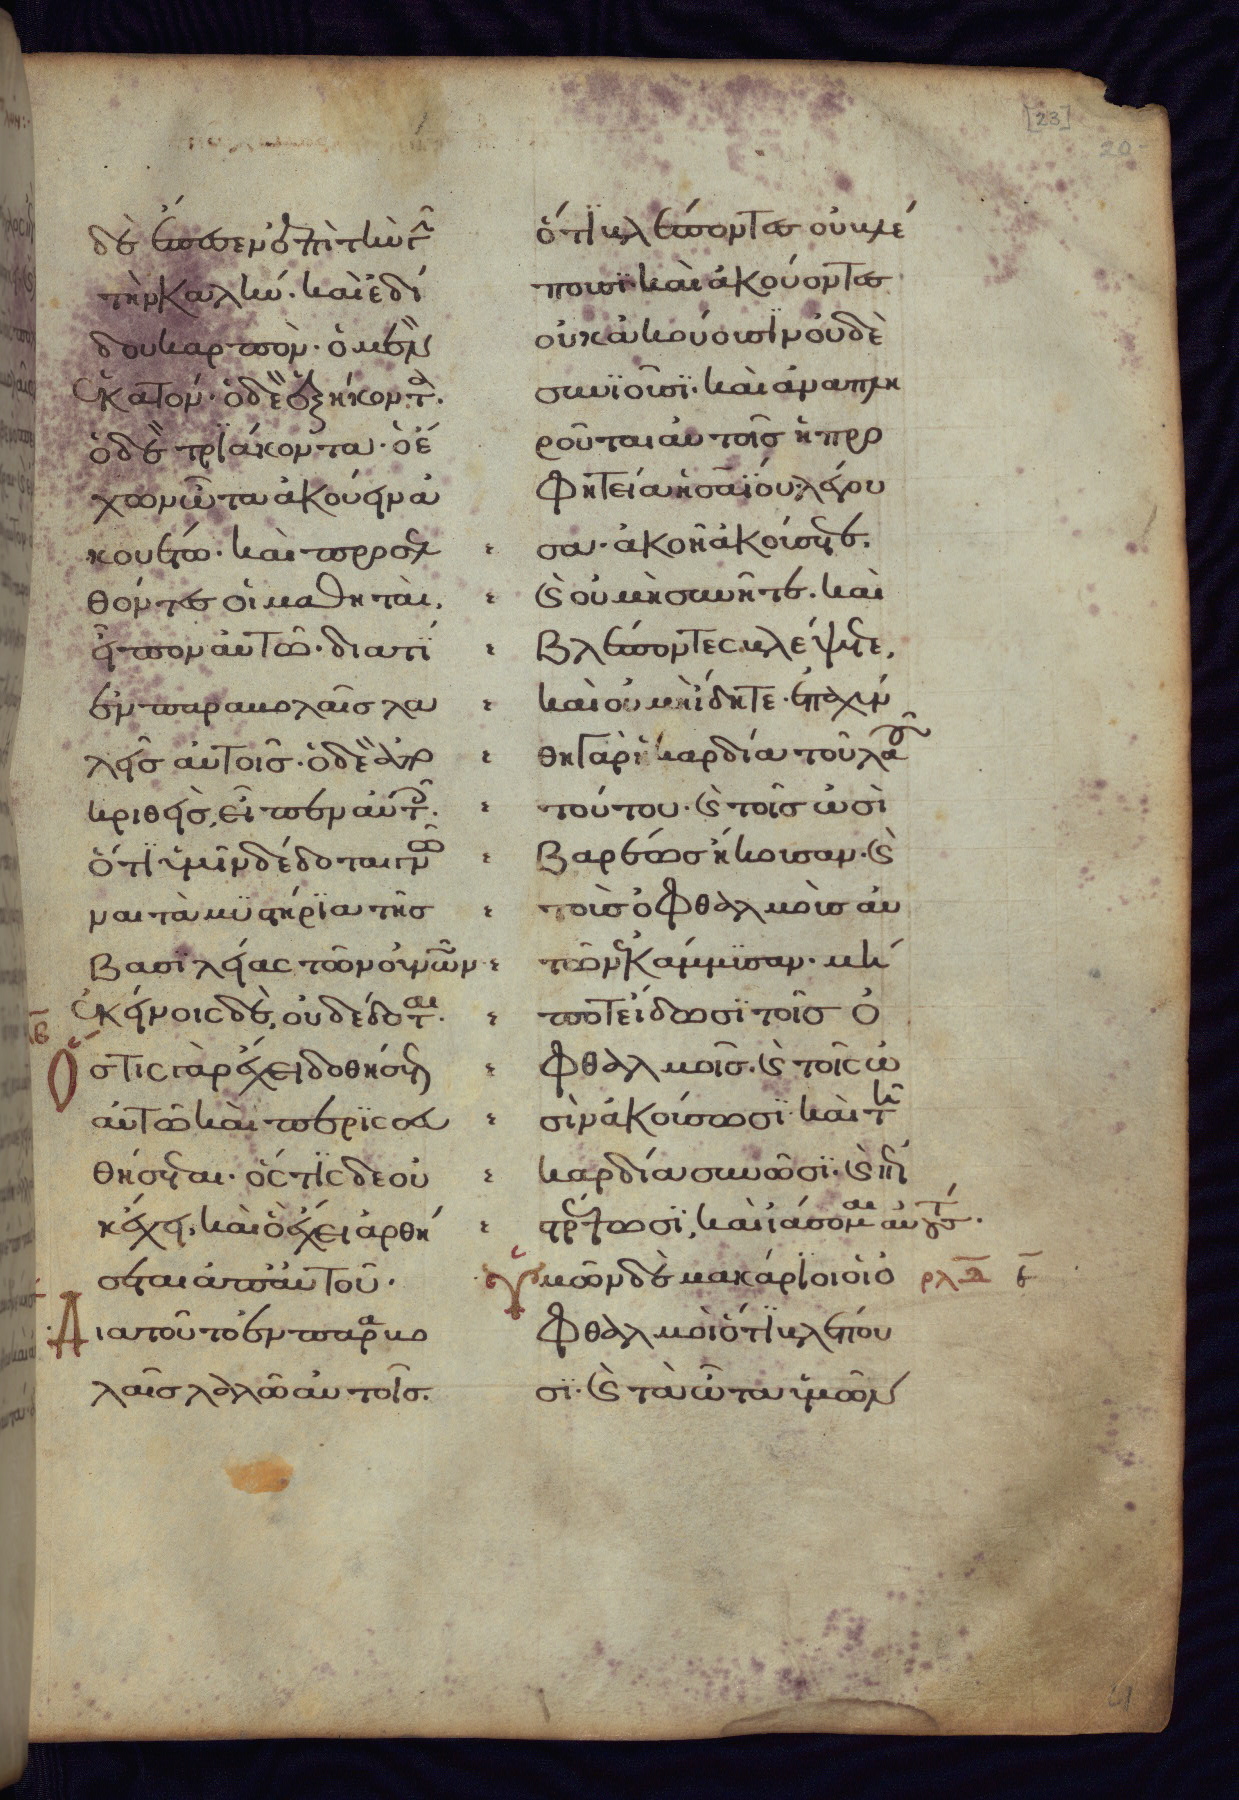 [23]
20
δὲ ἔπεσεν ἐπὶ τὴν γῆν
τὴν καλήν. καὶ ἐδί
δου καρπὸν. ὁ μὲν
ἑκατόν. ὁ δὲ ἑξήκοντα.
ὁ δὲ τρϊάκοντα. ὁ ἔ
χων ὦτα ἀκούειν ἀ
κουέτω. καὶ προσελ
θόντες οἱ μαθηταὶ,
εἶπον αὐτῶ. διατί
ἐν παραβολαῖς λα
λεῖς αὐτοῖς. ὁ δὲ ἀπο
κριθεὶς, εἶπεν αὐτοῖς.
ὅτϊ ὑμῖν δέδοται γνῶ
ναι τὰ μϋστήρϊα τῆς
βασϊλείας τῶν οὐνῶν
ἐκείνοις δὲ, οὐ δέδοται.
Ὅστις γὰρ ἔχει δοθήσεται
αὐτῶ καὶ περϊσσευ
θήσεται. ὅστϊς δε οὐ
κ ἔχει, καὶ ὃ ἔχει ἀρθή
σεται ἀπ αὐτοῦ.
Διατοῦτο ἐν παραβο
λαῖς λαλῶ αὐτοῖς.
ὅτϊ βλέποντες οὐ βλέ
πουσϊ καὶ ἀκούοντες
οὐκ ἀκούουσϊν οὐδὲ
συνϊοῦσϊ. καὶ ἀναπλη
ροῦται αὐτοῖς ἡ προ
φητεία ἡσαΐου λέγου
σα. ἀκοῆ ἀκούσετε.
καὶ οὐ μὴ συνῆτε. καὶ
βλέποντες βλέψετε,
καὶ οὐ μὴ ἴδητε. ἐπαχύν
θη γὰρ ἡ καρδία τοῦ λαοῦ
τούτου. καὶ τοῖς ὠσὶ
βαρέως ἤκουσαν. καὶ
τοὺς ὀφθαλμοὺς αὐ
τῶν ἐκάμμϋσαν. μή
ποτε ἴδωσϊ τοῖς ὀ
φθαλμοῖς. καὶ τοῖς ὠ
σὶν ἀκούσωσϊ καὶ τῆ
καρδία συνῶσϊ. καὶ ἐπι
στρέψωσϊ, καὶ ἰάσομαι αὐτούς.
ὑμῶν δὲ μακάρϊοι οἱ ὀ ρλδ ε
φθαλμοὶ ὅτϊ βλέπου
σϊ. καὶ τὰ ὦτα ὑμῶν